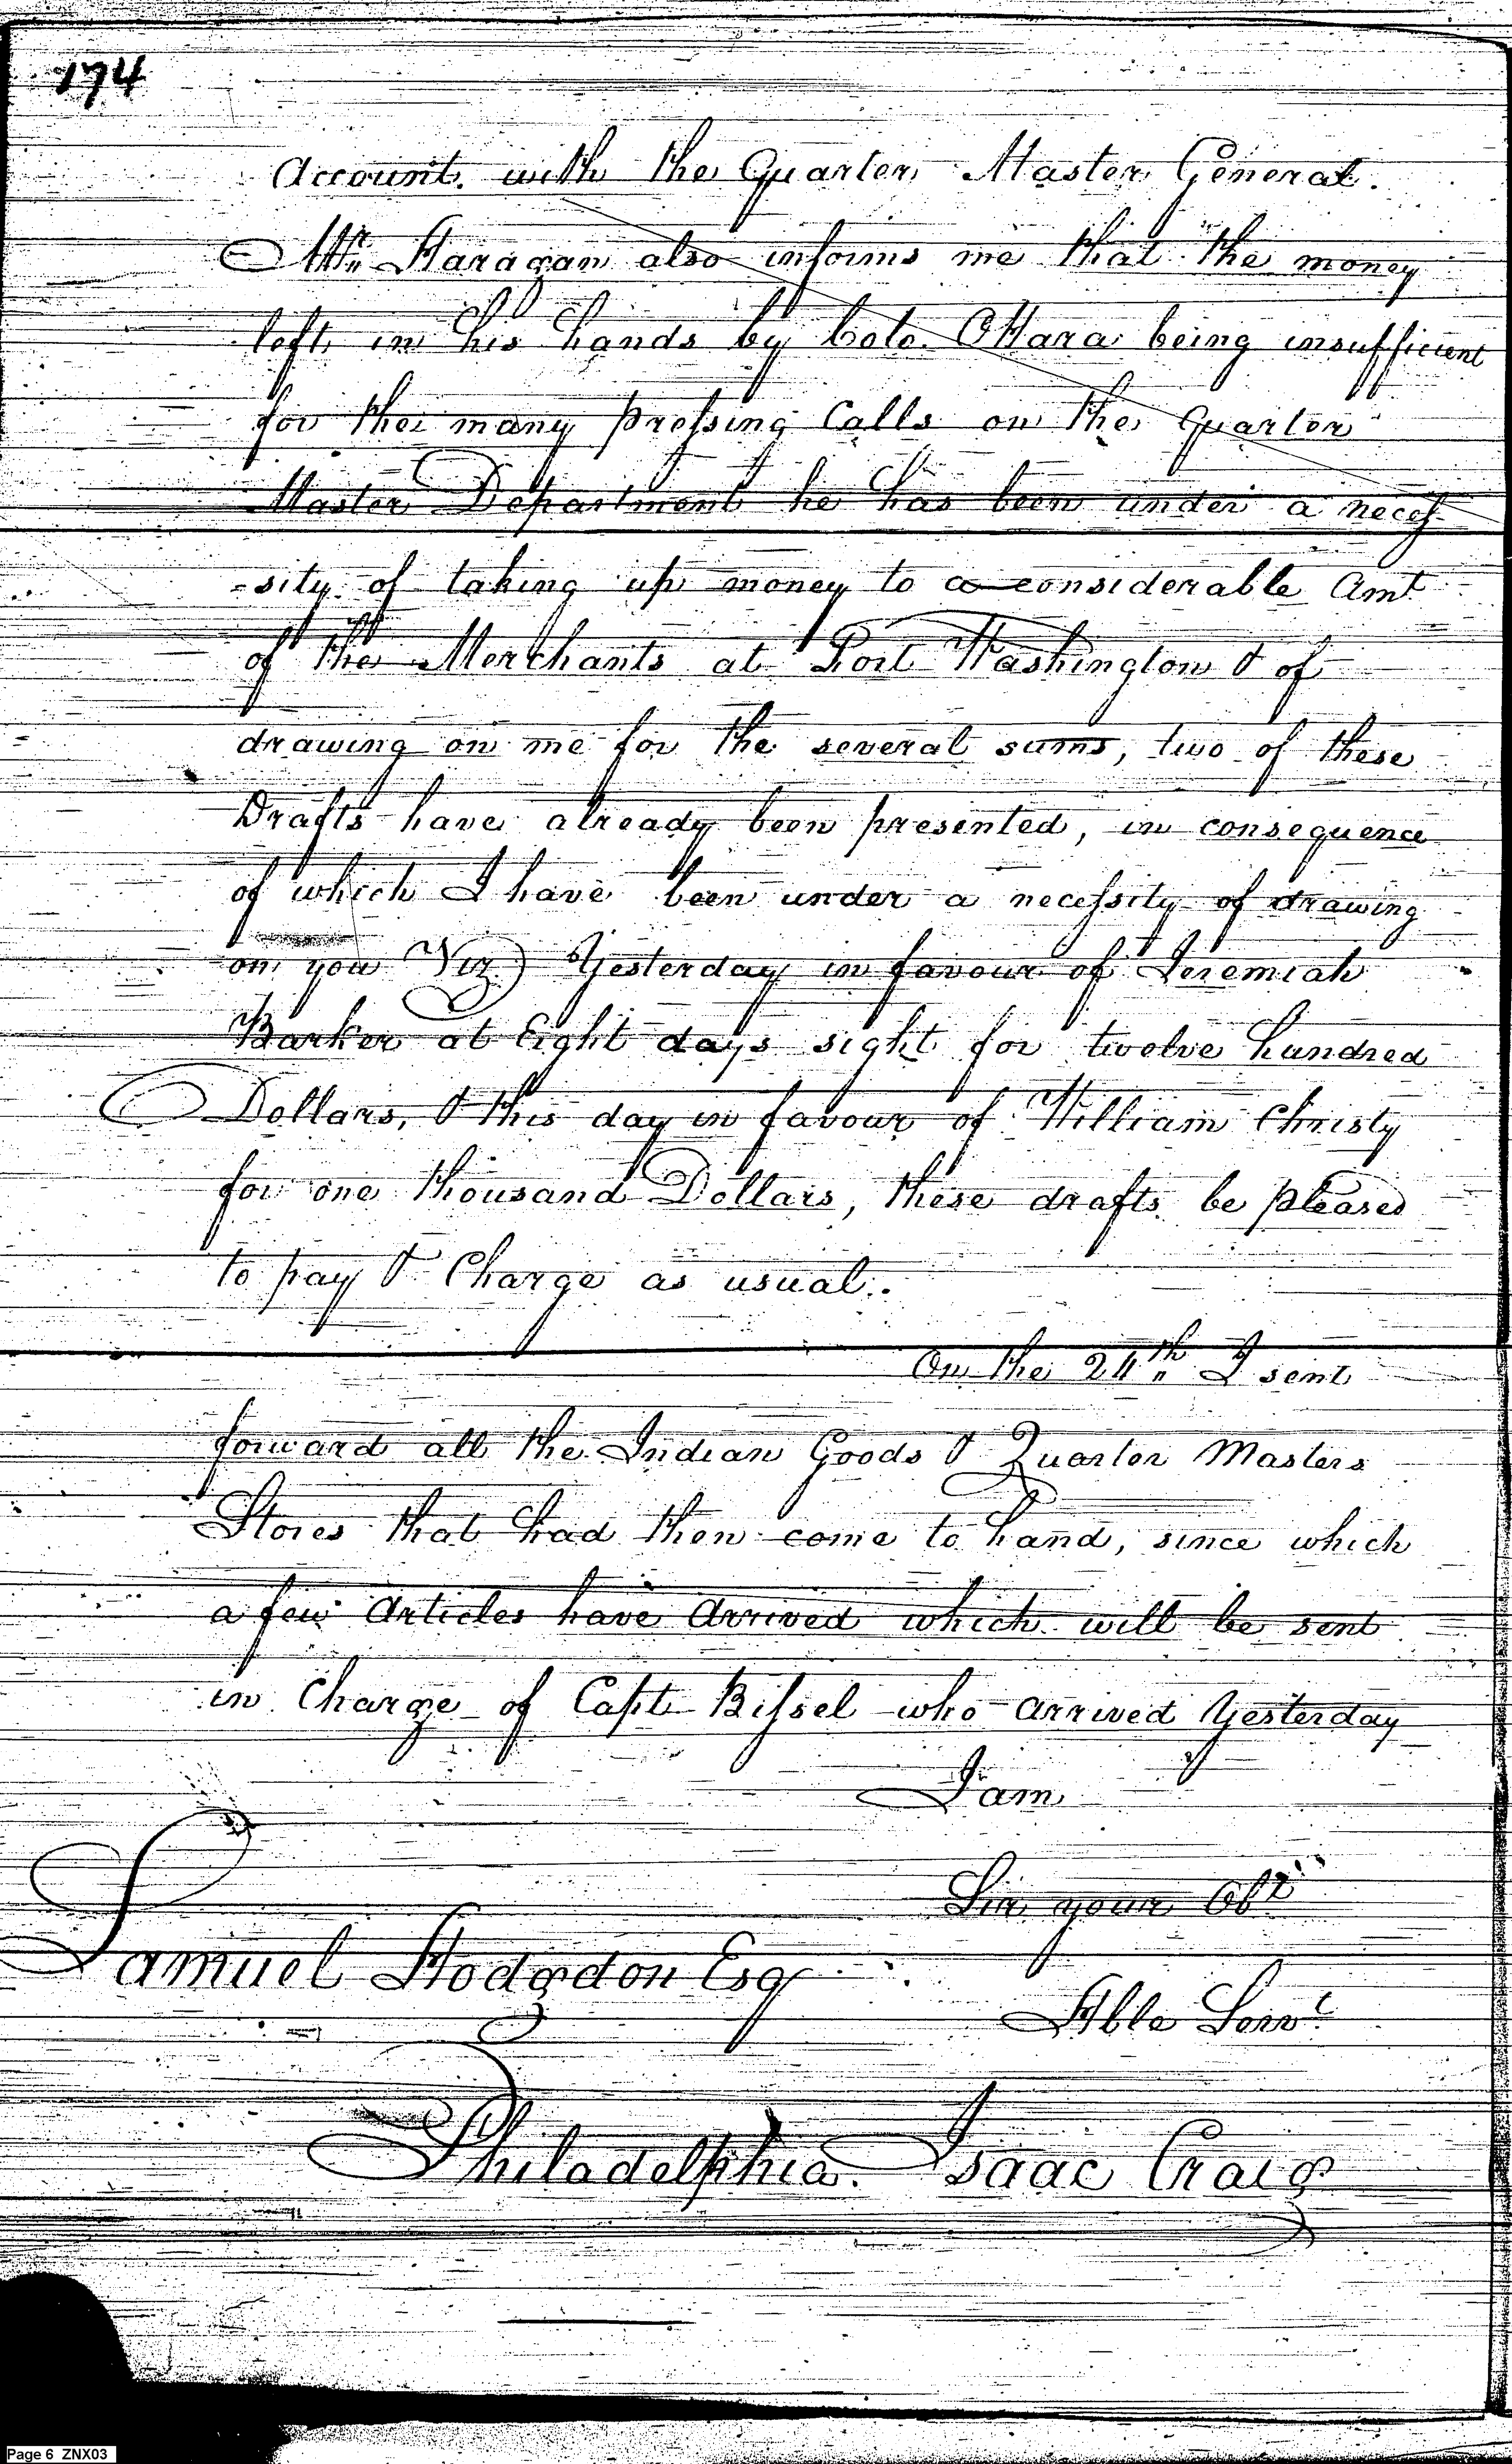 174
Account. with the Quarter Master General.
Mr. Haragan also informs me that the money
left in his hands by Colo. OHara being insufficient
for the many pressing Calls on the Quarter
Master Department he has been under a neces-
-sity of taking up money to a considerable Amt
of the Merchants at Fort Washington & of
drawing on me for the several sums, two of these
Drafts have already been presented, in consequence
of which I have been under a necessity of drawing
on you Viz) Yesterday in favour of Jeremiah
Barker at Eight days sight for twelve hundred
Dollars, & this day in favour of William Christy
for one thousand Dollars, these drafts be pleased
to pay & Charge as usual.
On the 24th I sent
forward all the Indian Goods & Quarter Masters
Stores that had then come to hand, since which
a few Articles have Arrived which will be sent
in Charge of Capt Bissel who arrived Yesterday
I am
Sir your Obt
Samuel Hodgdon Esq
Hble Servt
Philadelphia. Isaac Craig
Page 6 ZNX03